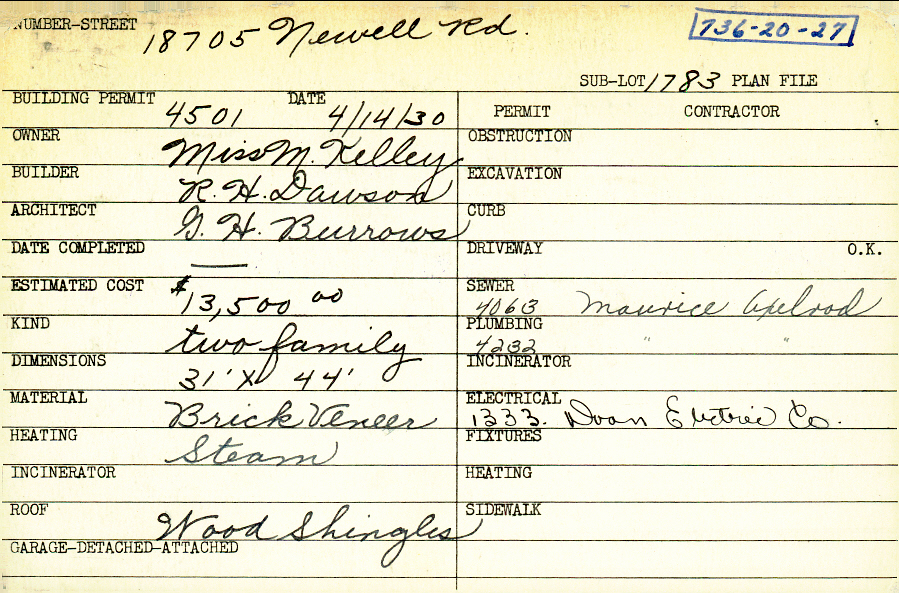 NUMBER-STREET 18705 Newell Rd. 736-20-27
SUB-LOT 1783 PLAN FILE
BUILDING PERMIT 4501 DATE 4/14/30 PERMIT CONTRACTOR
OWNER Miss M. Kelley OBSTRUCTION
BUILDER R. H. Dawson EXCAVATION
ARCHITECT G. H. Burrows CURB
DATE COMPLETED — DRIVEWAY O.K.
ESTIMATED COST $13,500 00 SEWER 4063 Maurice Apelrod
KIND two family PLUMBING 4232 " "
DIMENSIONS 31' X 44' INCINERATOR
MATERIAL Brick Veneer ELECTRICAL 1333. Doan Electric Co.
HEATING Steam FIXTURES
INCINERATOR HEATING
ROOF Wood Shingles SIDEWALK
GARAGE-DETACHED-ATTACHED